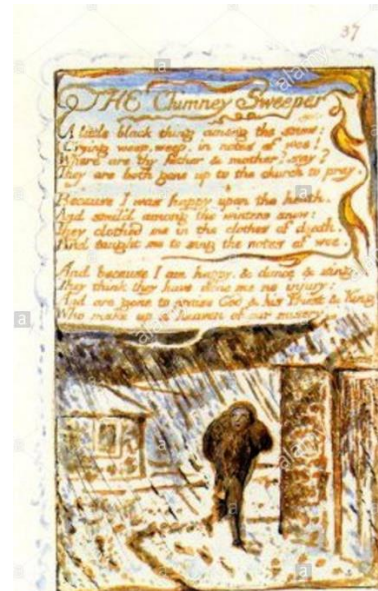 37
THE Chimney Sweeper
A little black thing among the snow:
Crying weep, weep, in notes of woe!
Where are thy father & mother? say?
They are both gone up to the church to pray.
Because I was happy upon the heath,
And smil'd among the winters snow:
They clothed me in the clothes of death,
And taught me to sing the notes of woe.
And because I am happy, & dance & sing,
They think they have done me no injury:
And are gone to praise God & his Priest & King
Who make up a heaven of our misery.
alamy